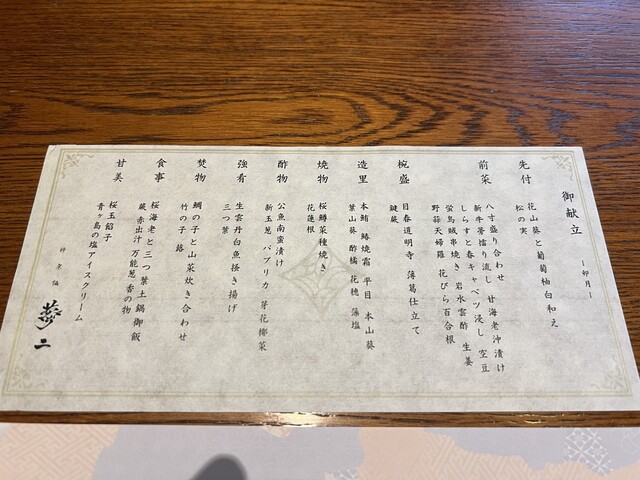 御献立
―卯月―
先付
花山葵と葡萄柚白和え
松の実
前菜
八寸盛り合わせ
新牛蒡擂り流し 甘海老沖漬け
しらすと春キャベツ浸し 空豆
蛍烏賊串焼き 岩水雲酢 生姜
野蒜天婦羅 花びら百合根
椀盛
目春道明寺 薄葛仕立て
鍵蕨
造里
本鮪 鰆焼霜 平目 本山葵
葉山葵 酢橘 花穂 藻塩
焼物
桜鱒菜種焼き
花蓮根
酢物
公魚南蛮漬け
新玉葱 パプリカ 芽花椰菜
強肴
生雲丹白魚掻き揚げ
三つ葉
焚物
鯛の子と山菜炊き合わせ
竹の子 蕗
食事
桜海老と三つ葉土鍋御飯
蕨赤出汁 万能葱 香の物
甘美
桜玉餡子
青ヶ島の塩アイスクリーム